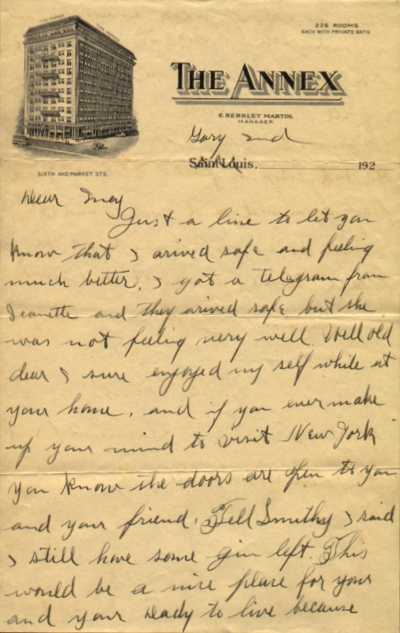 226 ROOMS
EACH WITH PRIVATE BATH
THE ANNEX
E. BERKLEY MARTIN,
MANAGER
Gary Ind
Saint Louis, 192
SIXTH AND MARKET STS.
Dear May
Just a line to let you
know that I arived safe and feeling
much better, I got a telegram from
Jeanette and they arived safe but she
was not feeling very well. Well old
dear I sure enjoyed my self while at
your home, and if you ever make
up your mind to visit New York
you know the doors are open to you
and your friend. Tell Smithy I said
I still have some gin left. This
would be a nice place for you
and your to live because